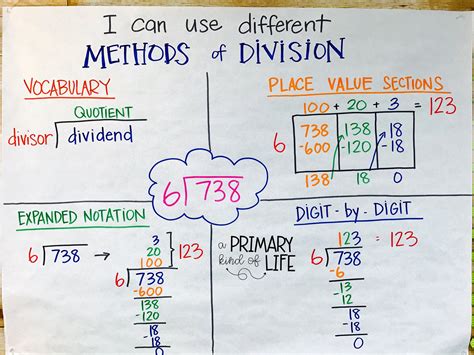 I can use different
METHODS of DIVISION
VOCABULARY
QUOTIENT
divisor dividend
PLACE VALUE SECTIONS
100 + 20 + 3 = 123
738 138 18
6 -600 -120 -18
138 18 0
6 738
EXPANDED NOTATION
6 738 →
3
20
100
123
6 738
-600
138
-120
18
-18
0
a PRIMARY
kind of LIFE
DIGIT-by-DIGIT
123 = 123
6 738
-6
13
-12
18
-18
0